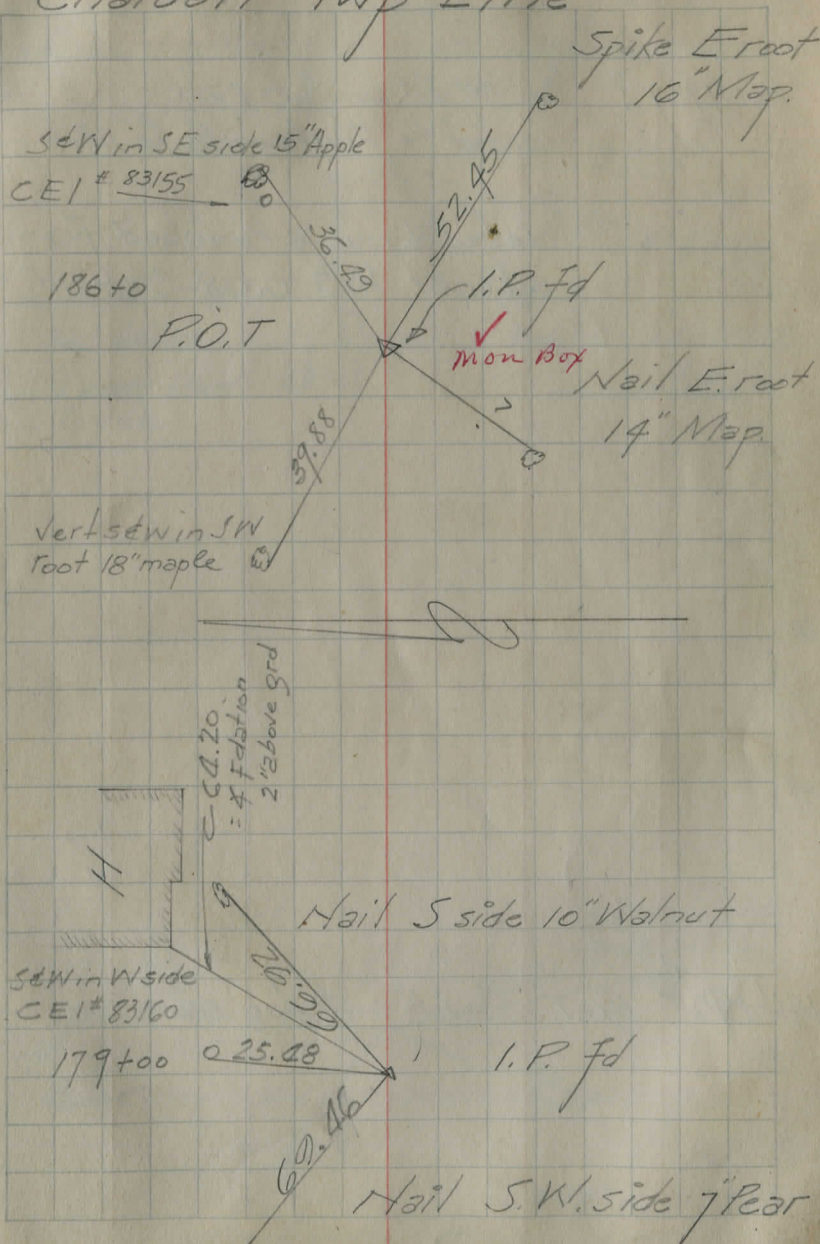 Chardon Twp Line
Spike E root
16" Map.
S&W in SE side 15" Apple
CEI # 83155
52.45
36.49
186+0
I.P. fd
P.O.T
Mon Box
Nail E. root
14" Map.
39.88
Vert s&w in SW
root 18" maple
64.20
= & Fdation
2" above grd
H
Nail S side 10" Walnut
S&W in W side
CEI # 83160
179+00
25.48
I.P. fd
69.46
Nail S.W. side 7" Pear